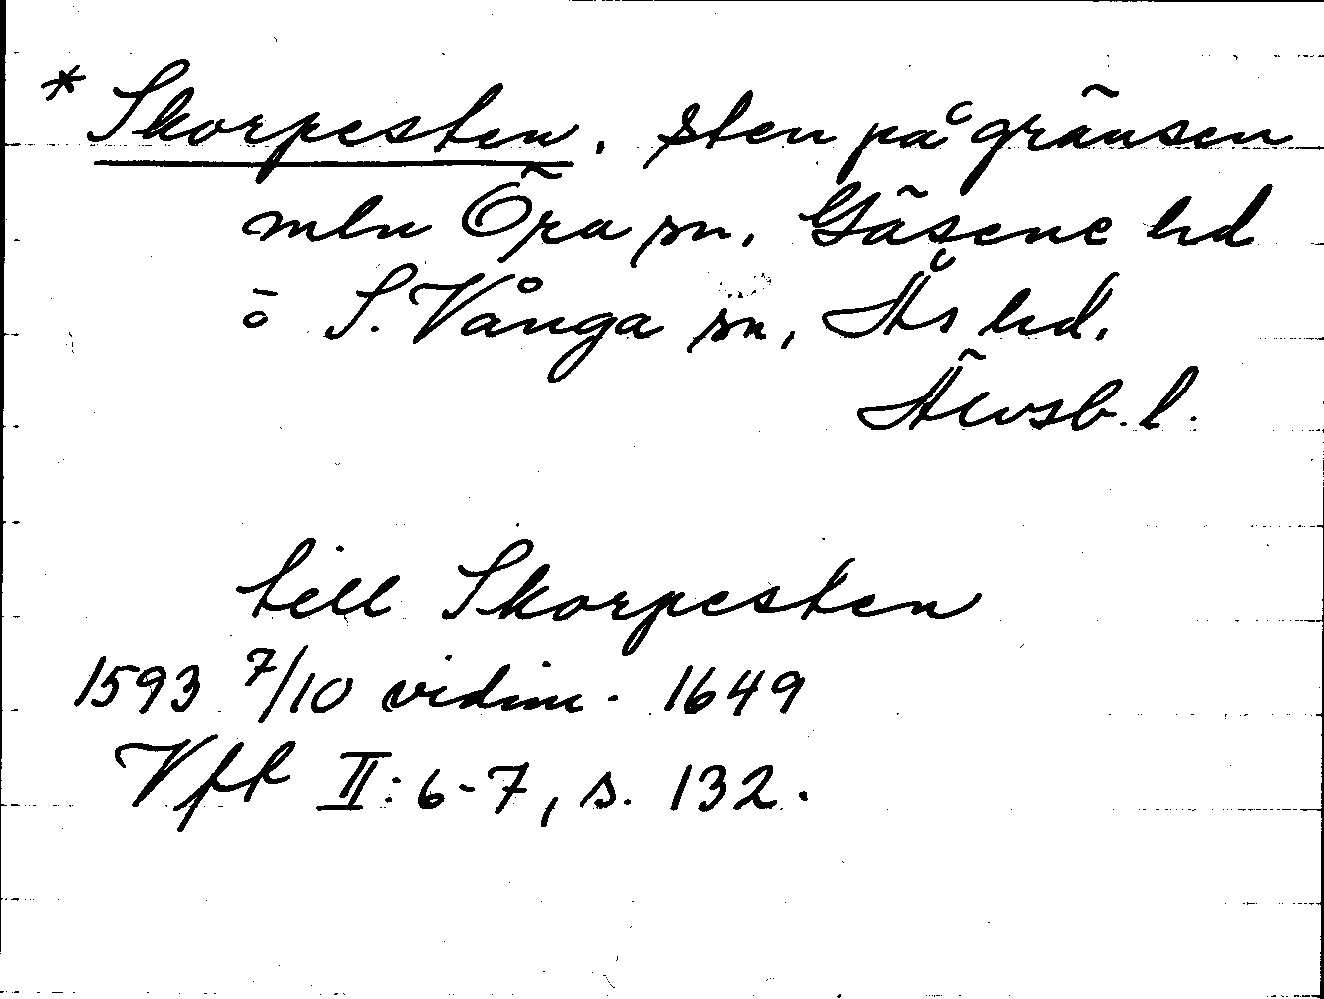 * Skorpesten. Sten på gränsen
mln Öra sn, Gäsene hd
o S. Vånga sn, Ås hd.
Älvsb. l.
till Skorpesten
1593 7/10 vidim. 1649
Vff II: 6-7, s. 132.